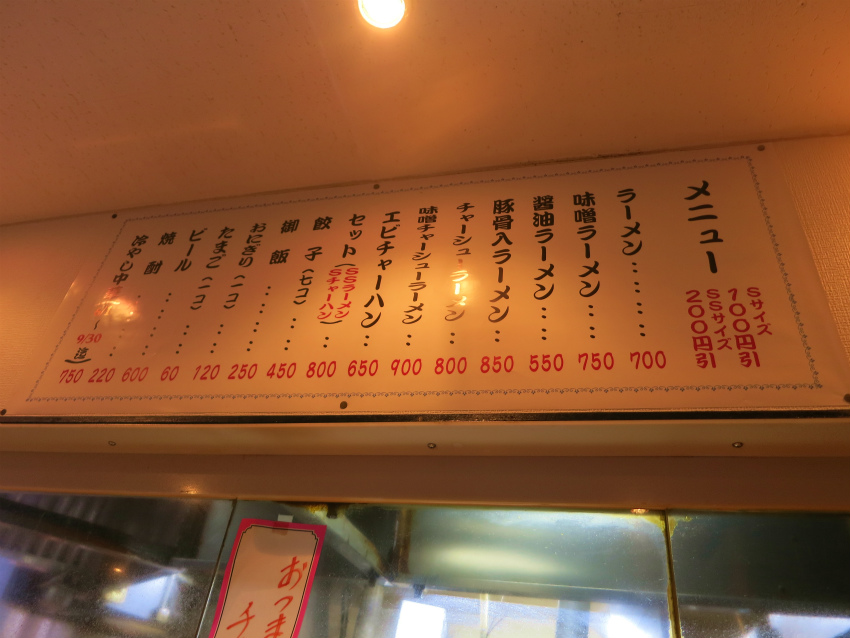 メニュー
Sサイズ
100円引
SSサイズ
200円引
ラーメン……700
味噌ラーメン…750
醤油ラーメン…550
豚骨入ラーメン…850
チャーシューラーメン…800
味噌チャーシューラーメン…900
エビチャーハン…650
セット(SSラーメン Sチャーハン)…800
餃子(七コ)…450
御飯……250
おにぎり(一コ)…120
たまご(一コ)…60
ビール……600
焼酎……220
冷やし中 〜9/30迄)750
おつま
チ